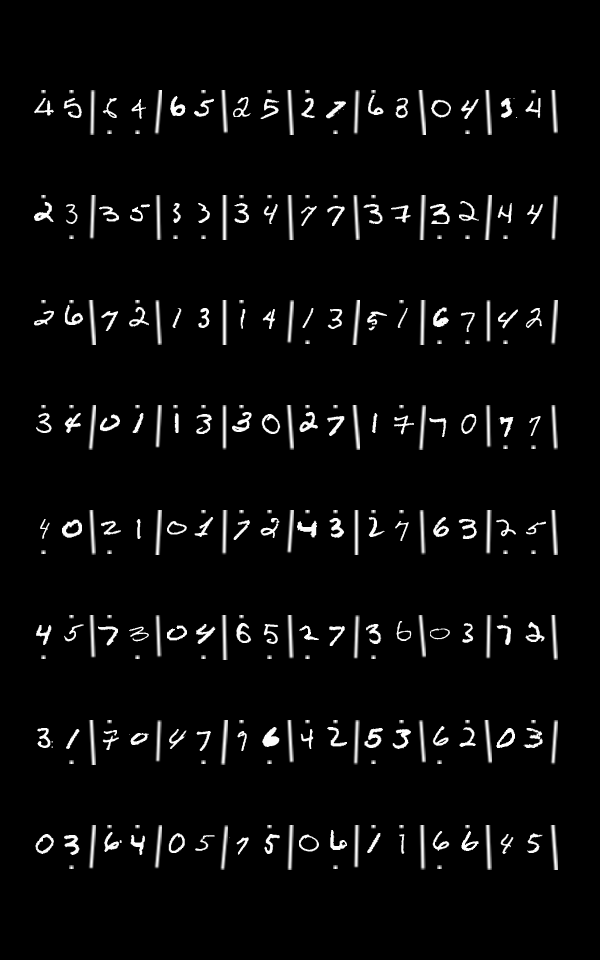 4 5 | 6 4 | 6 5 | 2 5 | 2 7 | 6 3 | 0 4 | 3 4 |
2 3 | 3 5 | 3 3 | 3 4 | 7 7 | 3 7 | 3 2 | 4 4 |
2 6 | 7 2 | 1 3 | 1 4 | 1 3 | 5 1 | 6 7 | 4 2 |
3 4 | 0 1 | 1 3 | 3 0 | 2 7 | 1 7 | 7 0 | 7 7 |
4 0 | 2 1 | 0 1 | 7 2 | 4 3 | 2 7 | 6 3 | 2 5 |
4 5 | 7 3 | 0 4 | 6 5 | 2 7 | 3 6 | 0 3 | 7 2 |
3 1 | 7 0 | 4 7 | 7 6 | 4 2 | 5 3 | 6 2 | 0 3 |
0 3 | 6 4 | 0 5 | 7 5 | 0 6 | 1 1 | 6 6 | 4 5 |